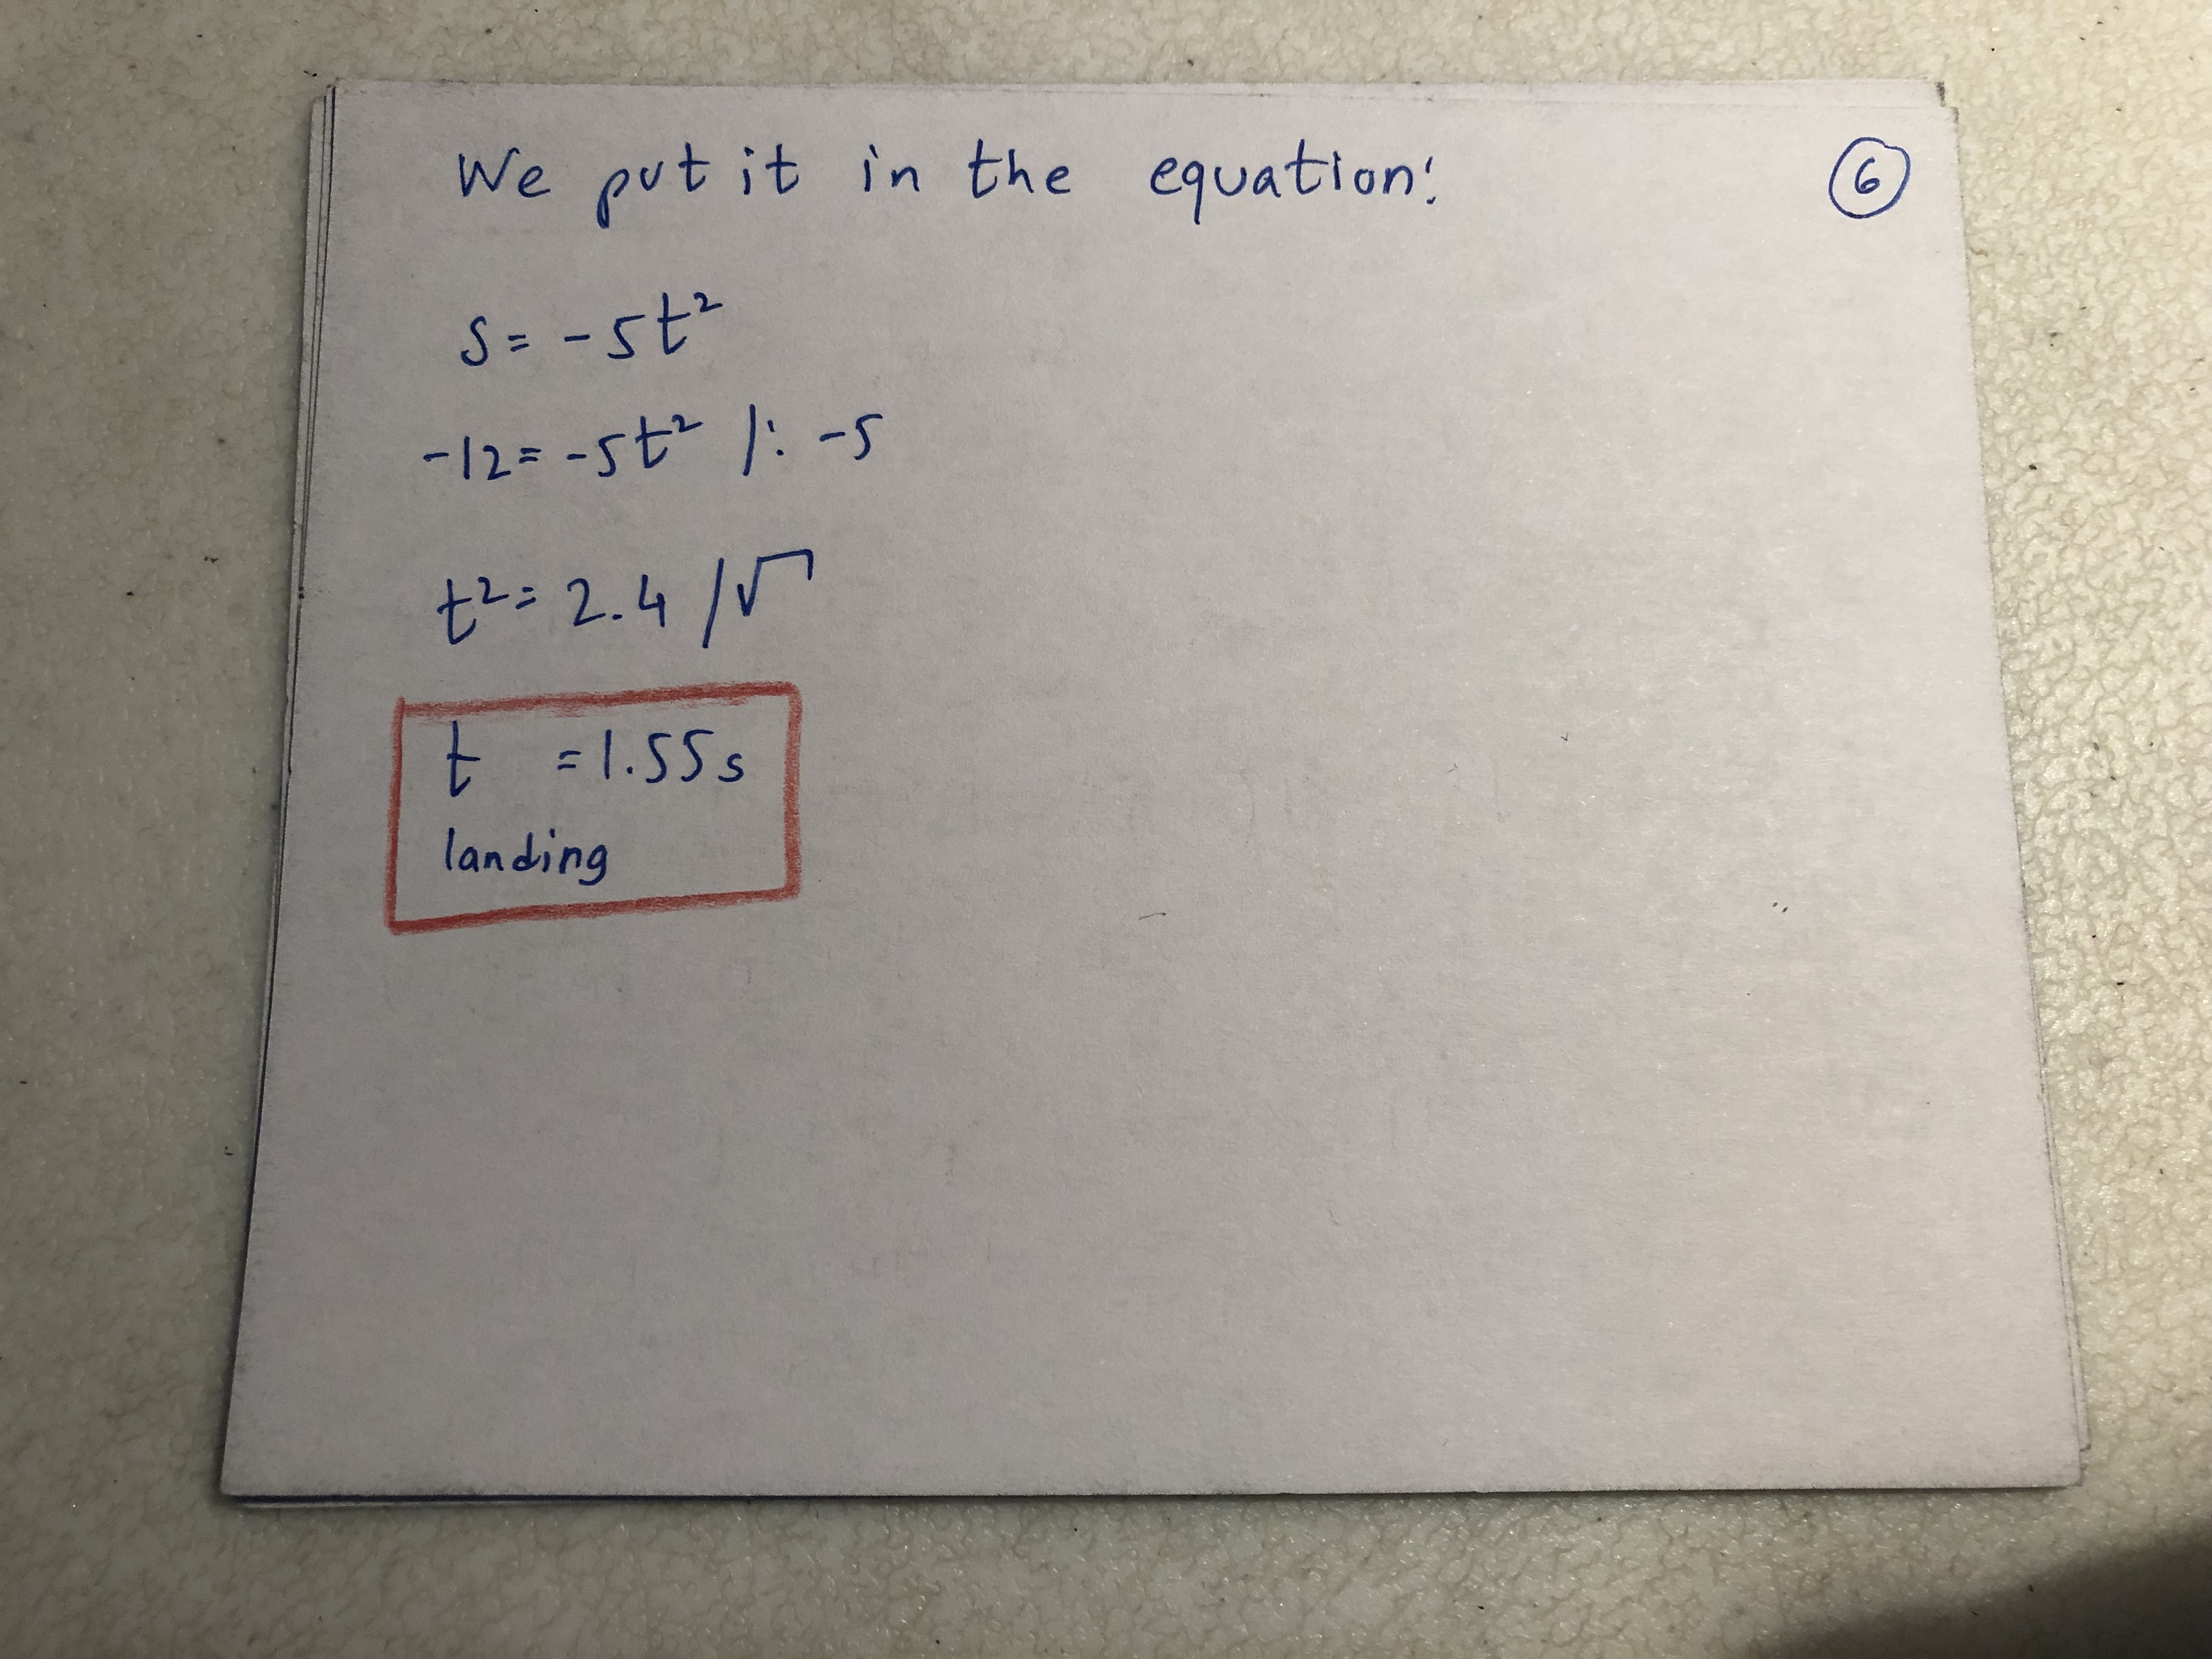 We put it in the equation: 6
s = -5t²
-12 = -5t² /: -5
t² = 2.4 /√
t = 1.55s
landing